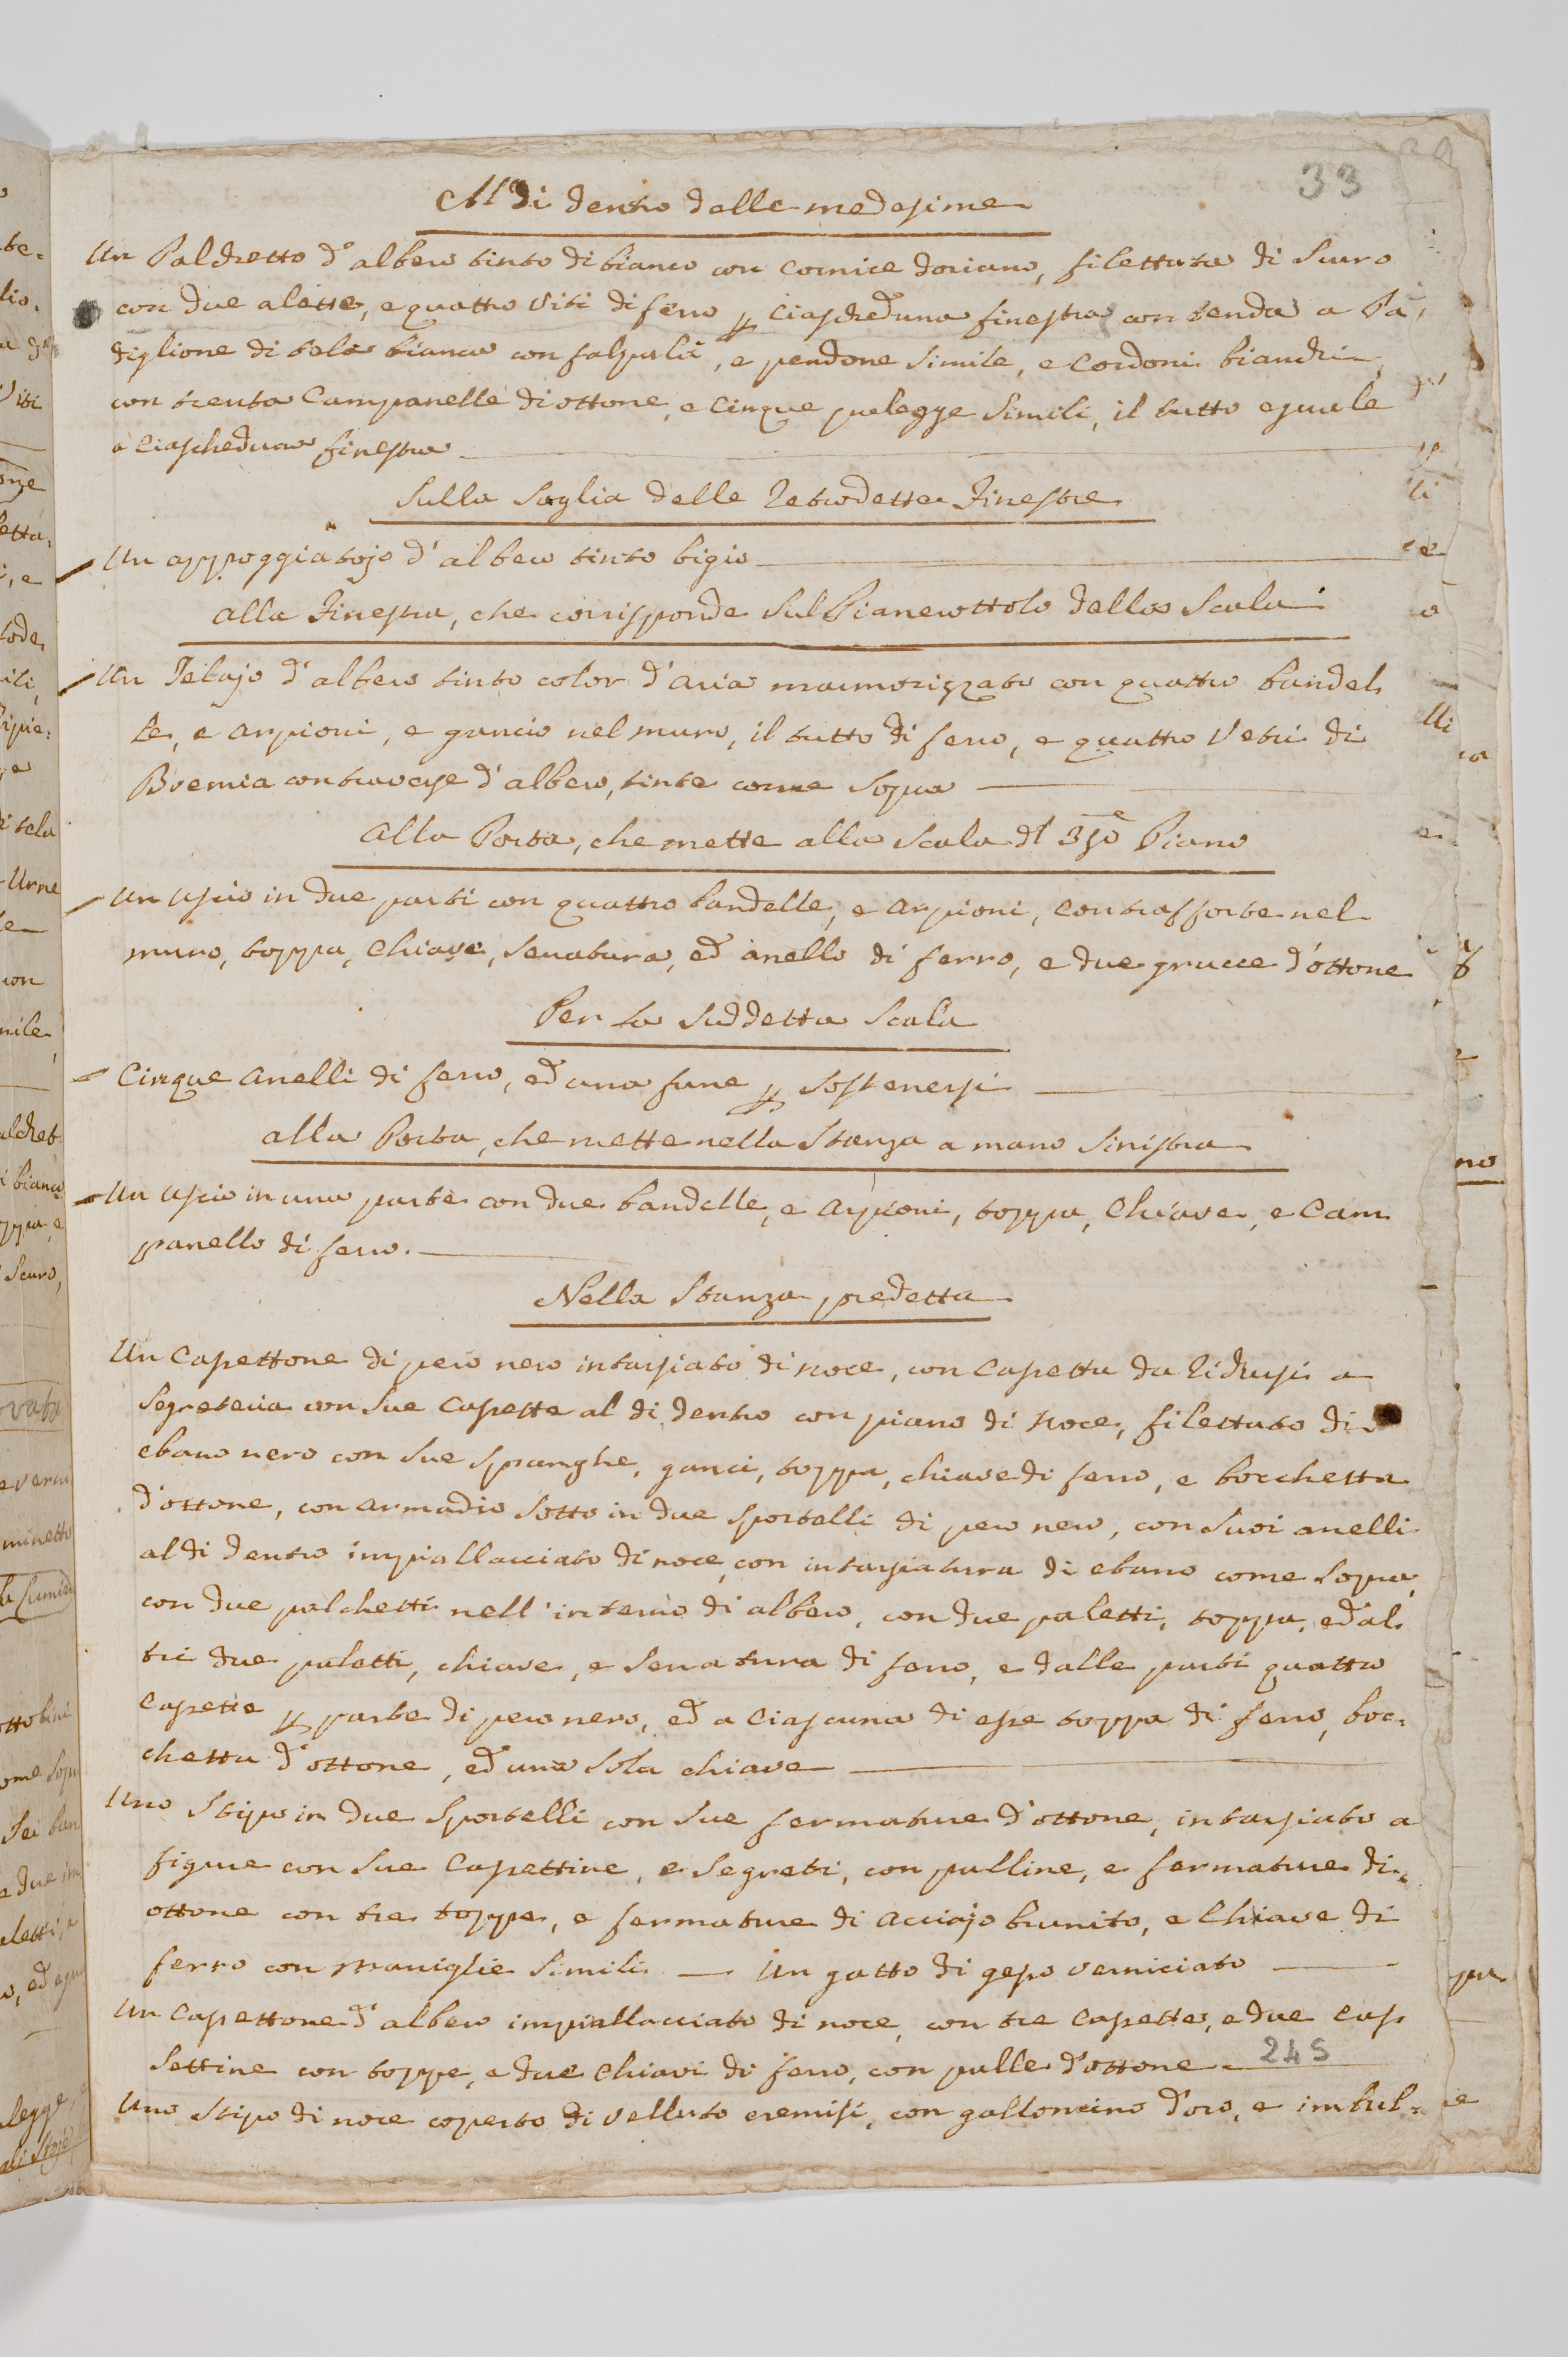 33
Al di dentro delle medesime
Un Palchetto d'albero tinto di bianco con cornice dorians, filettata di scuro
con due alette, e quattro viti di ferro p ciascheduna finestra con tenda a Pa-
diglione di tela bianca con falpalà, e pendone simile, e cordoni bianchi
con trenta Campanelle di ottone, e cinque pulegge simili, il tutto eguale
a ciascheduna finestra
Sulla Soglia delle retrodette Finestre
Un appoggiatojo d'albero tinto bigio
alla Finestra, che corrisponde sul Pianerottolo della Scala
Un Telajo d'albero tinto color d'aria marmorizzato con quattro bandel-
le, e arpioni, e gancio nel muro, il tutto di ferro, e quattro Vetri di
Boemia con traverse d'albero, tinte come sopra
alla Porta, che mette alla Scala dl 3zo Piano
Un uscio in due parti con quattro bandelle, e arpioni, contrafforte nel
muro, toppa, chiave, serratura, ed anello di ferro, e due grucce d'ottone
Per la suddetta Scala
Cinque anelli di ferro, ed una fune p sostenersi
alla Porta, che mette nella Stanza a mano sinistra
Un uscio in una parte con due bandelle, e arpioni, toppa, chiave, e Cam
panello di ferro.
Nella Stanza predetta
Un Cassettone di pero nero intarsiato di noce, con Cassetta da ridursi a
Segreteria con sue Cassette al di dentro con piano di noce, filettato di
ebano nero con sue spranghe, ganci, toppa, chiave di ferro, e bocchetta
d'ottone, con armadio sotto in due sportelli di pero nero, con suoi anelli
al di dentro impiallacciato di noce, con intarsiatura di ebano come sopra,
con due palchetti nell'interno di albero, con due paletti, toppa, ed al-
tri due paletti, chiave, e serratura di ferro, e dalle parti quattro
Cassette p parte di pero nero, ed a ciascuna di esse toppa di ferro, boc-
chetta d'ottone, ed una sola chiave
Uno Stipo in due sportelli con sue fermature d'ottone, intarsiato a
figure con sue Cassettine, e segreti, con palline, e fermature di
ottone con tre toppe, e fermature di acciajo brunito, e Chiave di
ferro con maniglie simili — Un gatto di gesso verniciato
Un Cassettone d'albero impiallacciato di noce, con tre Cassette, e due Cas
settine con toppe, e due chiavi di ferro, con palle d'ottone 245
Uno Stipo di noce coperto di velluto cremisi, con galloncino d'oro, e imbul-